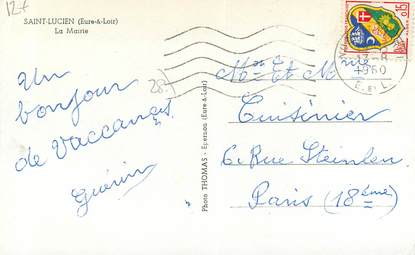 12€
SAINT-LUCIEN (Eure-&-Loir)
La Mairie
0,15
1960
E.-&-L.
28-
Un
bonjour
de Vaccances
Guérin
Photo THOMAS - Epernon (Eure-&-Loir)
Mr Et Mme
Cuisinier
6. Rue Steinlen
Paris (18ème)